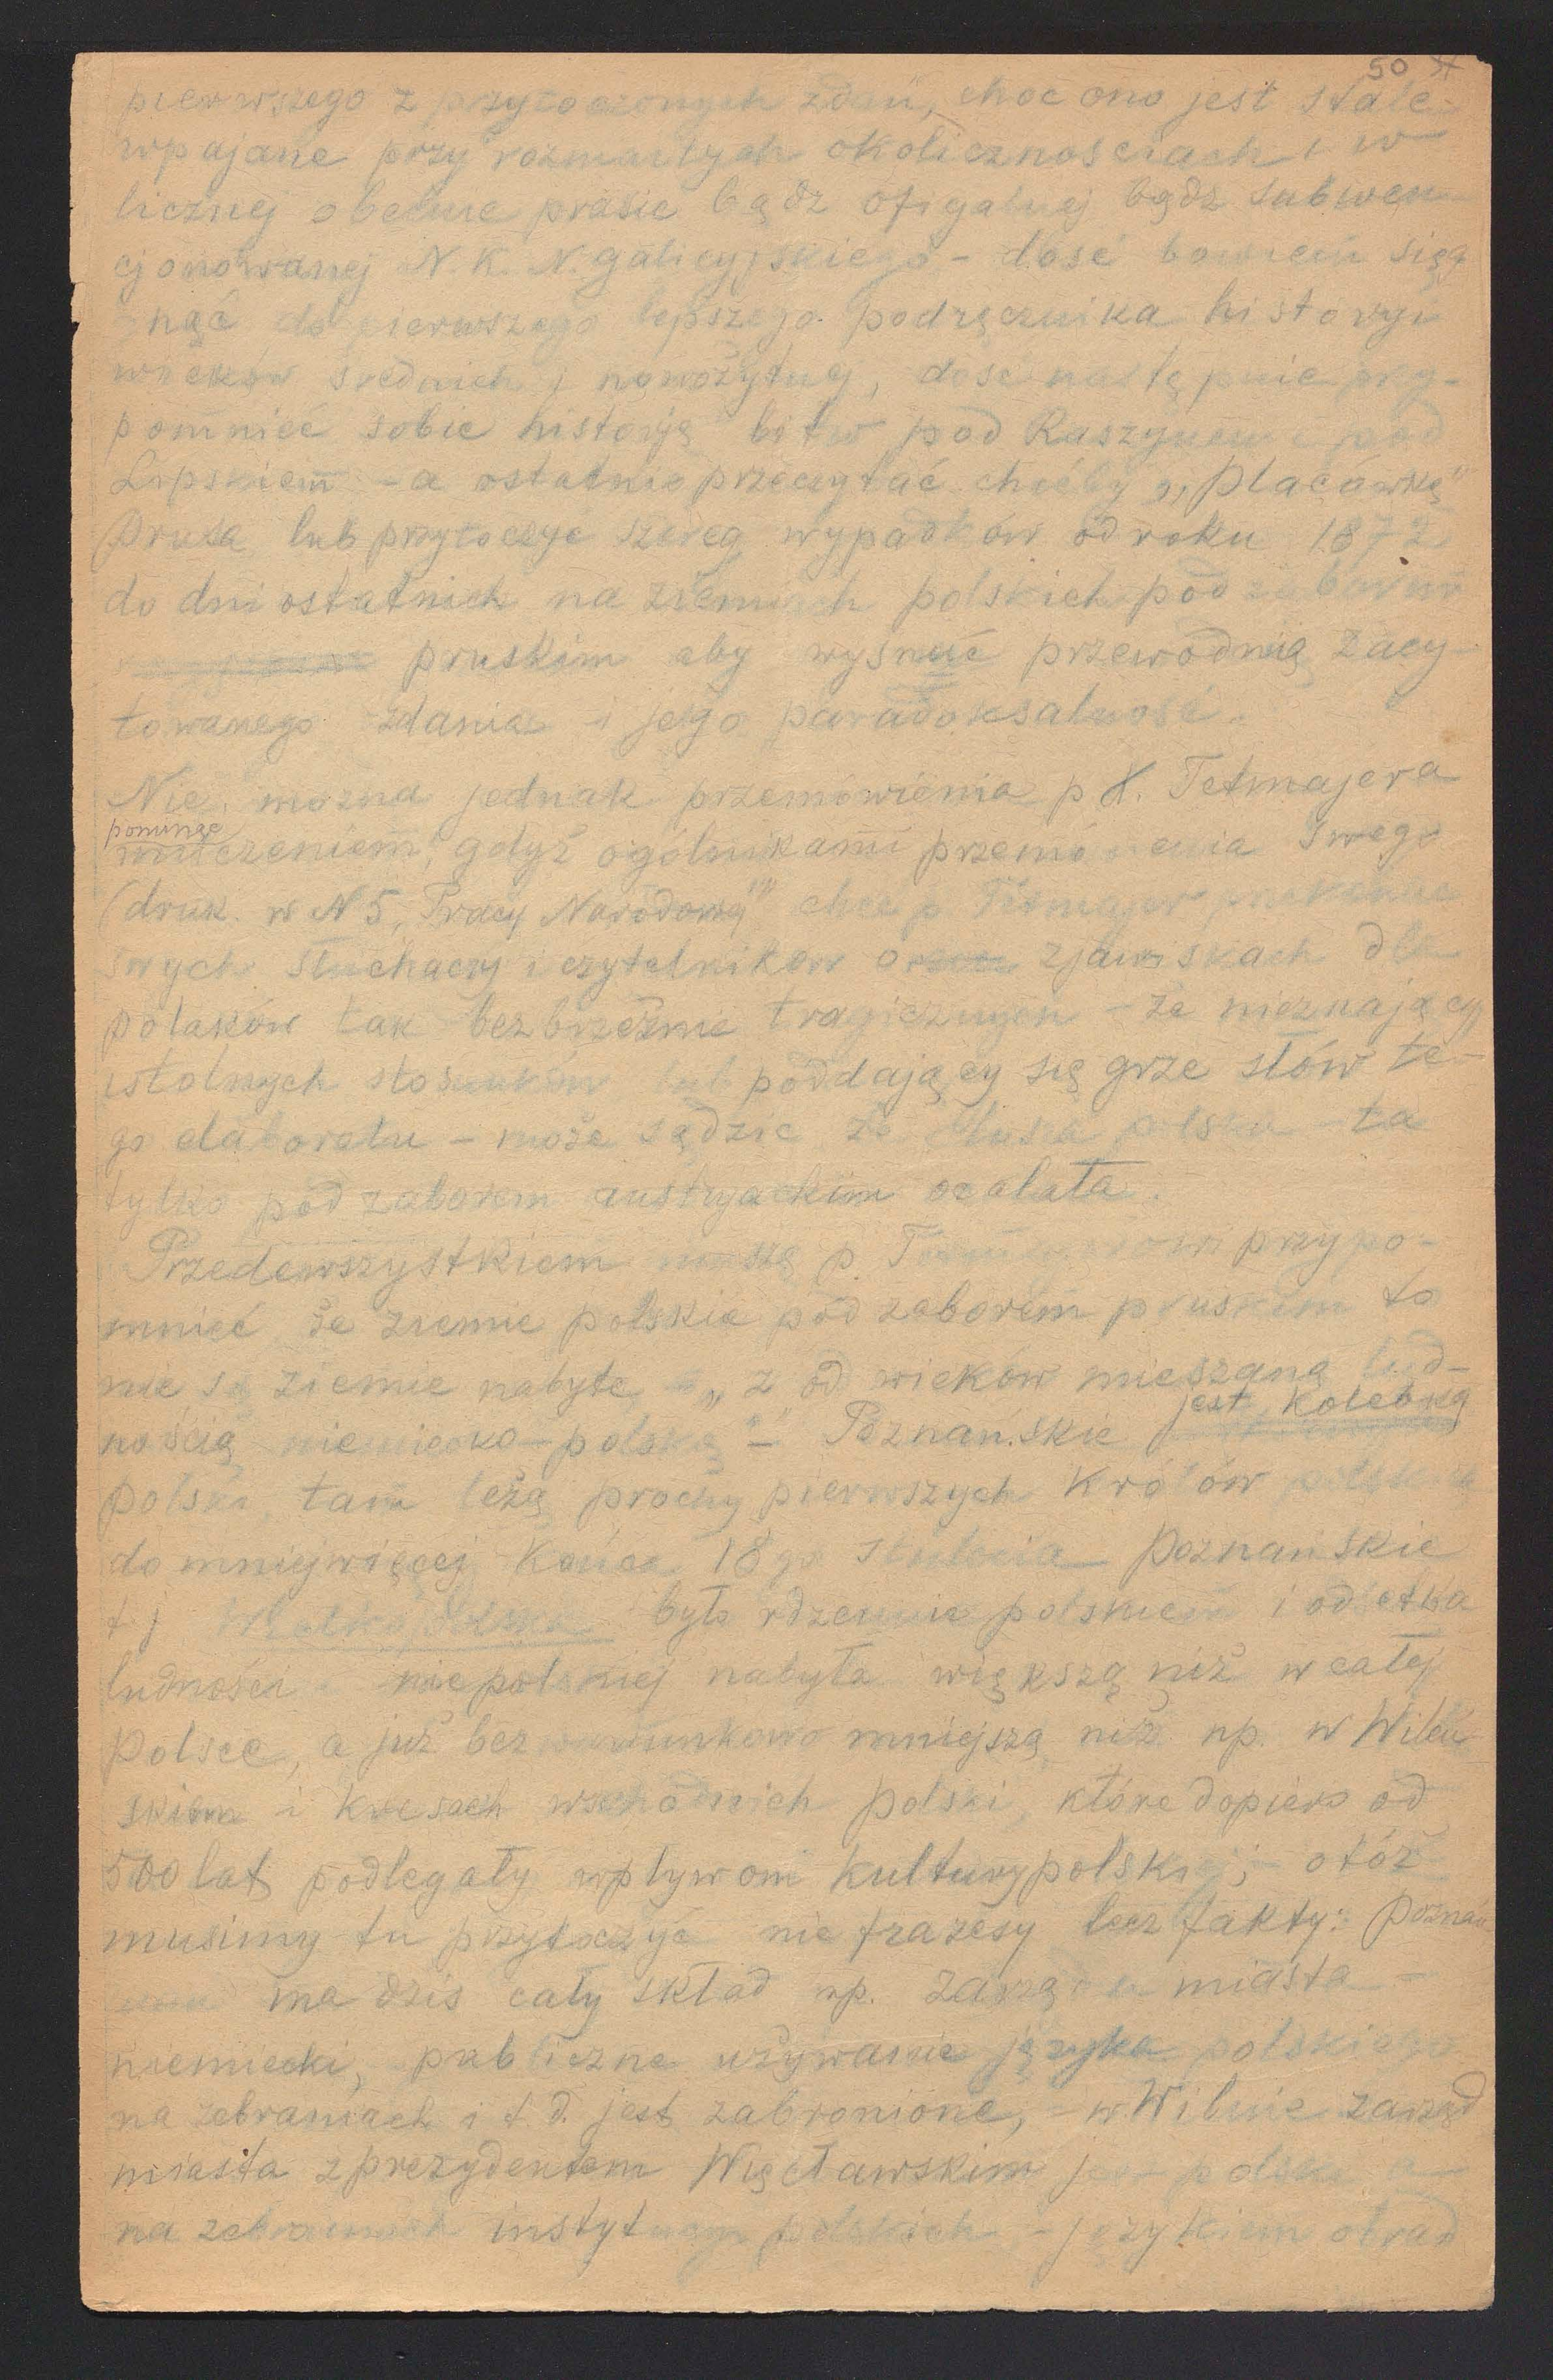 50
pierwszego z przytoczonych zdań, choć ono jest stale
wpajane przy rozmaitych okolicznościach i w
licznej obecnie prasie bądź oficjalnej bądź subwen-
cjonowanej N. K. N. galicyjskiego - dość bowiem sięg
nąć do pierwszego lepszego podręcznika historyi
wieków średnich i nowożytnej, dość następnie przy-
pomnieć sobie historję bitw pod Raszynem i pod
Lipskiem - a ostatnio przeczytać choćby „Placówkę"
Prusa lub przytoczyć szereg wypadków od roku 1872
do dni ostatnich na ziemiach polskich pod zaborem
pruskim aby wysnuć przewodnią zacy-
towanego zdania i jego paradoksalność.
Nie można jednak przemówienia p. Tetmajera
pominąć
milczeniem, gdyż ogólnikami przemówienia swego
(druk. w N 5 „Pracy Narodowej" chce p Tetmajer przekonać
swych słuchaczy i czytelników o zjawiskach dla
polaków tak bezbrzeżnie tragicznych - że nieznający
istotnych stosunków lub poddający się grze słów te-
go elaboratu - może sądzić że dusza polska - ta
tylko pod zaborem austryackim ocalała.
Przedewszystkiem muszę p. Tetmajerowi przypo-
mnieć że ziemie polskie pod zaborem pruskim to
nie są ziemie nabyte - „z od wieków mieszaną lud-
nością niemiecko-polską" - Poznańskie jest kolebką
polski, tam leżą prochy pierwszych królów polskich
do mniejwięcej końca 18 go stulecia Poznańskie
t. j Wielkopolska było rdzennie polskiem i odsetka
ludności niepolskiej nabyła większą niż w całej
Polsce, a już bezwarunkowo mniejszą niż np. w Wileń
skiem i kresach wschodnich polski, które dopiero od
500 lat podlegały wpływom kultury polskiej; - otóż
musimy tu przytoczyć nie frazesy lecz fakty: Poznań
ma dziś cały skład np. zarządu miasta -
niemiecki, publiczne używanie języka polskiego
na zebraniach i t. d. jest zabronione, - w Wilnie zarząd
miasta z prezydentem Węcławskim jest polski a
na zebraniach instytucyj polskich - językiem obrad